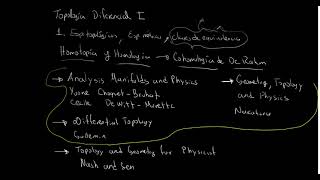 Topología Diferencial I
1. Esp. topológicos, Esp. métricos, Clases de equivalencia
Homotopía y Homología → Cohomología de De Rham
→ Analysis Manifolds and Physics
Yvone Choquet-Bruhat
Cecile DeWitt-Morette
→ Geometry, Topology
and Physics
Nakahara
→ Differential Topology
→ Topology and Geometry for Physicist
Nash and Sen